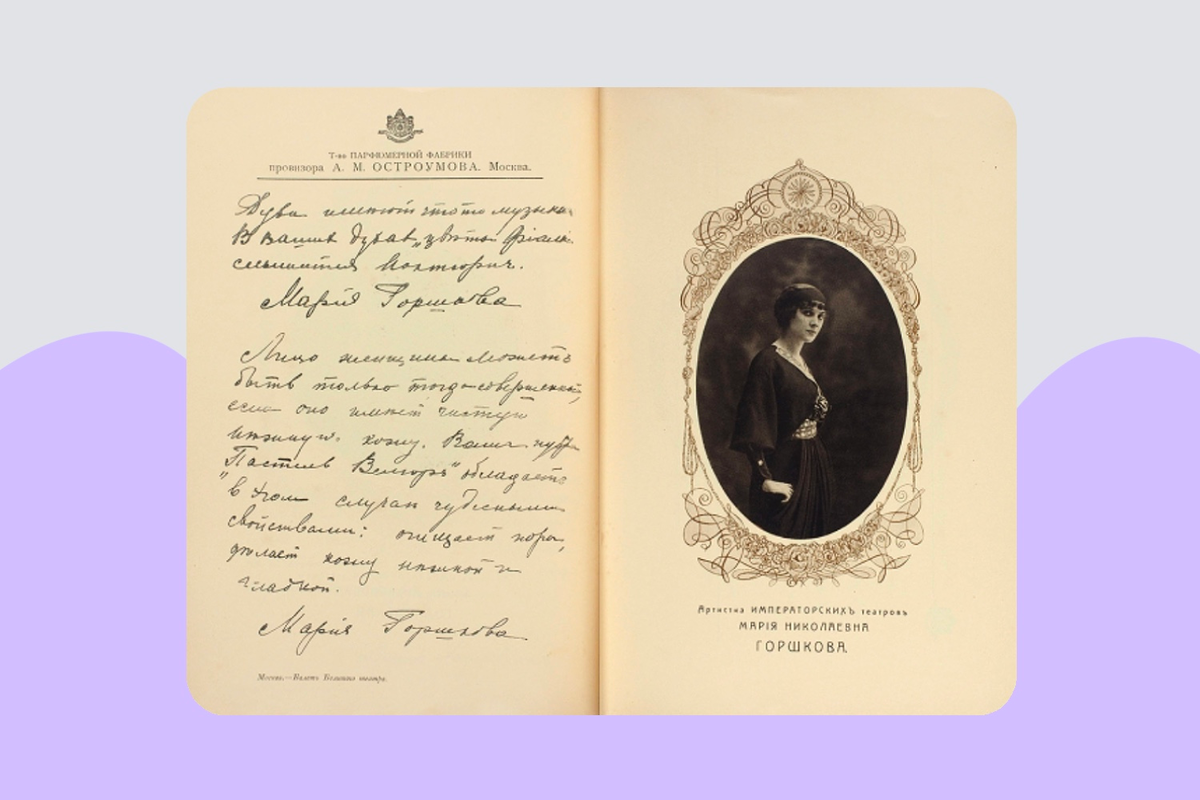 Т-во ПАРФЮМЕРНОЙ ФАБРИКИ
провизора А. М. ОСТРОУМОВА. Москва.
имеют что то
В духах „цвѣты
слышится
Марія Горшкова
Лицо женщины можетъ
быть только тогда
если оно имѣет чистую
кожу. Ваша
„Пастель Велюръ" обладаетъ
в этом случаѣ чудесными
свойствами: очищает поры,
дѣлает кожу нѣжной и
гладкой.
Марія Горшкова
Москва.—Балетъ Большого театра.
Артистка ИМПЕРАТОРСКИХЪ театровъ
МАРІЯ НИКОЛАЕВНА
ГОРШКОВА.